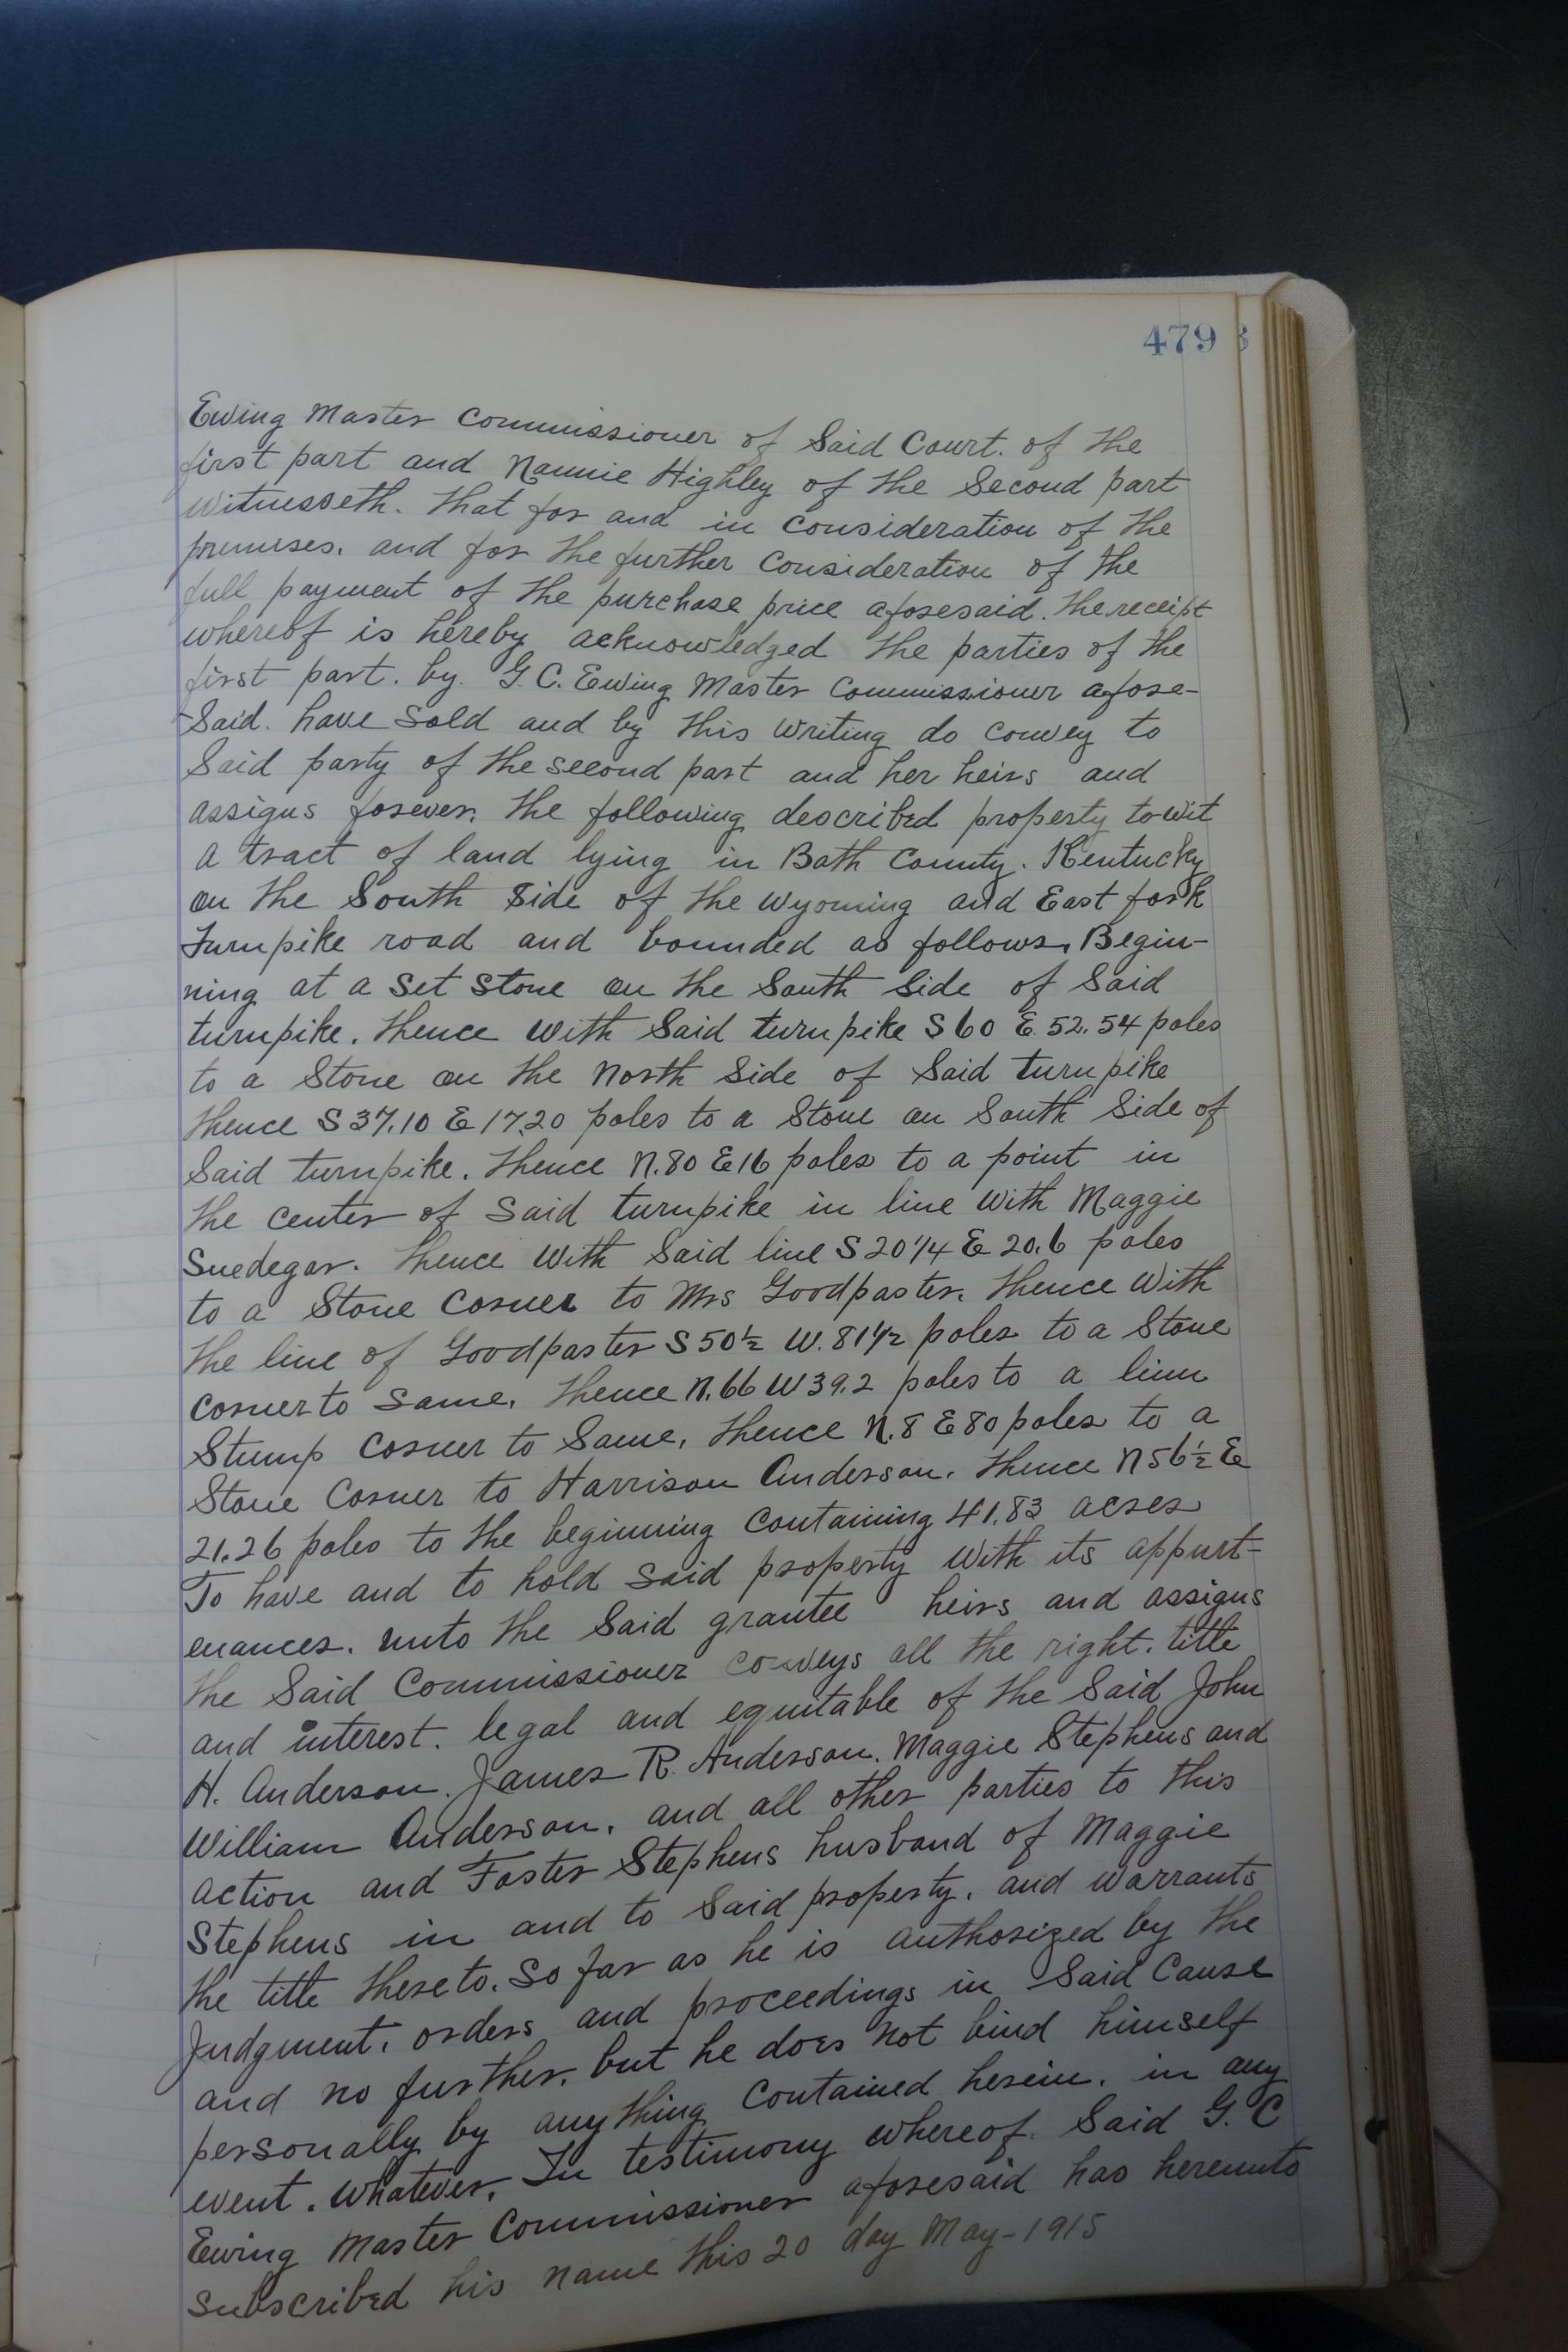 479
Ewing Master Commissioner of Said Court. of the
first part and Nannie Highley of the Second part
Witnesseth. That for and in Consideration of the
premises. and for the further Consideration of the
full payment of the purchase price aforesaid. the receipt
whereof is hereby acknowledged the parties of the
first part. by. G. C. Ewing Master Commissioner afore-
-Said. have Sold and by this writing do convey to
Said party of the second part and her heirs and
assigns forever. the following described property to wit
A tract of land lying in Bath County. Kentucky
on the South Side of the Wyoming and East fork
Turnpike road and bounded as follows. Begin-
ning at a Set Stone on the South Side of Said
turnpike. thence With Said turnpike S 60 E. 52.54 poles
to a Stone on the North Side of Said turnpike
thence S 37.10 E 17.20 poles to a Stone on South Side of
Said turnpike. thence N. 80 E 16 poles to a point in
the center of Said turnpike in line With Maggie
Snedegar. thence With Said line S 20 1/4 E 20.6 poles
to a Stone Corner to Mrs Goodpaster. thence With
the line of Goodpaster S 50 1/2 W. 81 1/2 poles to a Stone
corner to Same. thence N. 66 W 39.2 poles to a linn
Stump Corner to Same. thence N. 8 E 80 poles to a
Stone Corner to Harrison Anderson. thence N 56 1/2 E
21.26 poles to the beginning Containing 41.83 acres
To have and to hold Said property With its appurt-
enances. unto the Said grantee heirs and assigns
the Said Commissioner conveys all the right. title
and interest. legal and equitable of the Said John
H. Anderson. James R. Anderson. Maggie Stephens and
William Anderson. and all other parties to this
action and Foster Stephens husband of Maggie
Stephens in and to Said property. and warrants
the title thereto. So far as he is authorized by the
Judgment. orders and proceedings in Said Cause
and no further. but he does not bind himself
personally by anything Contained herein. in any
event. Whatever. In testimony whereof. Said G. C
Ewing Master Commissioner aforesaid has hereunto
Subscribed his name this 20 day May-1915